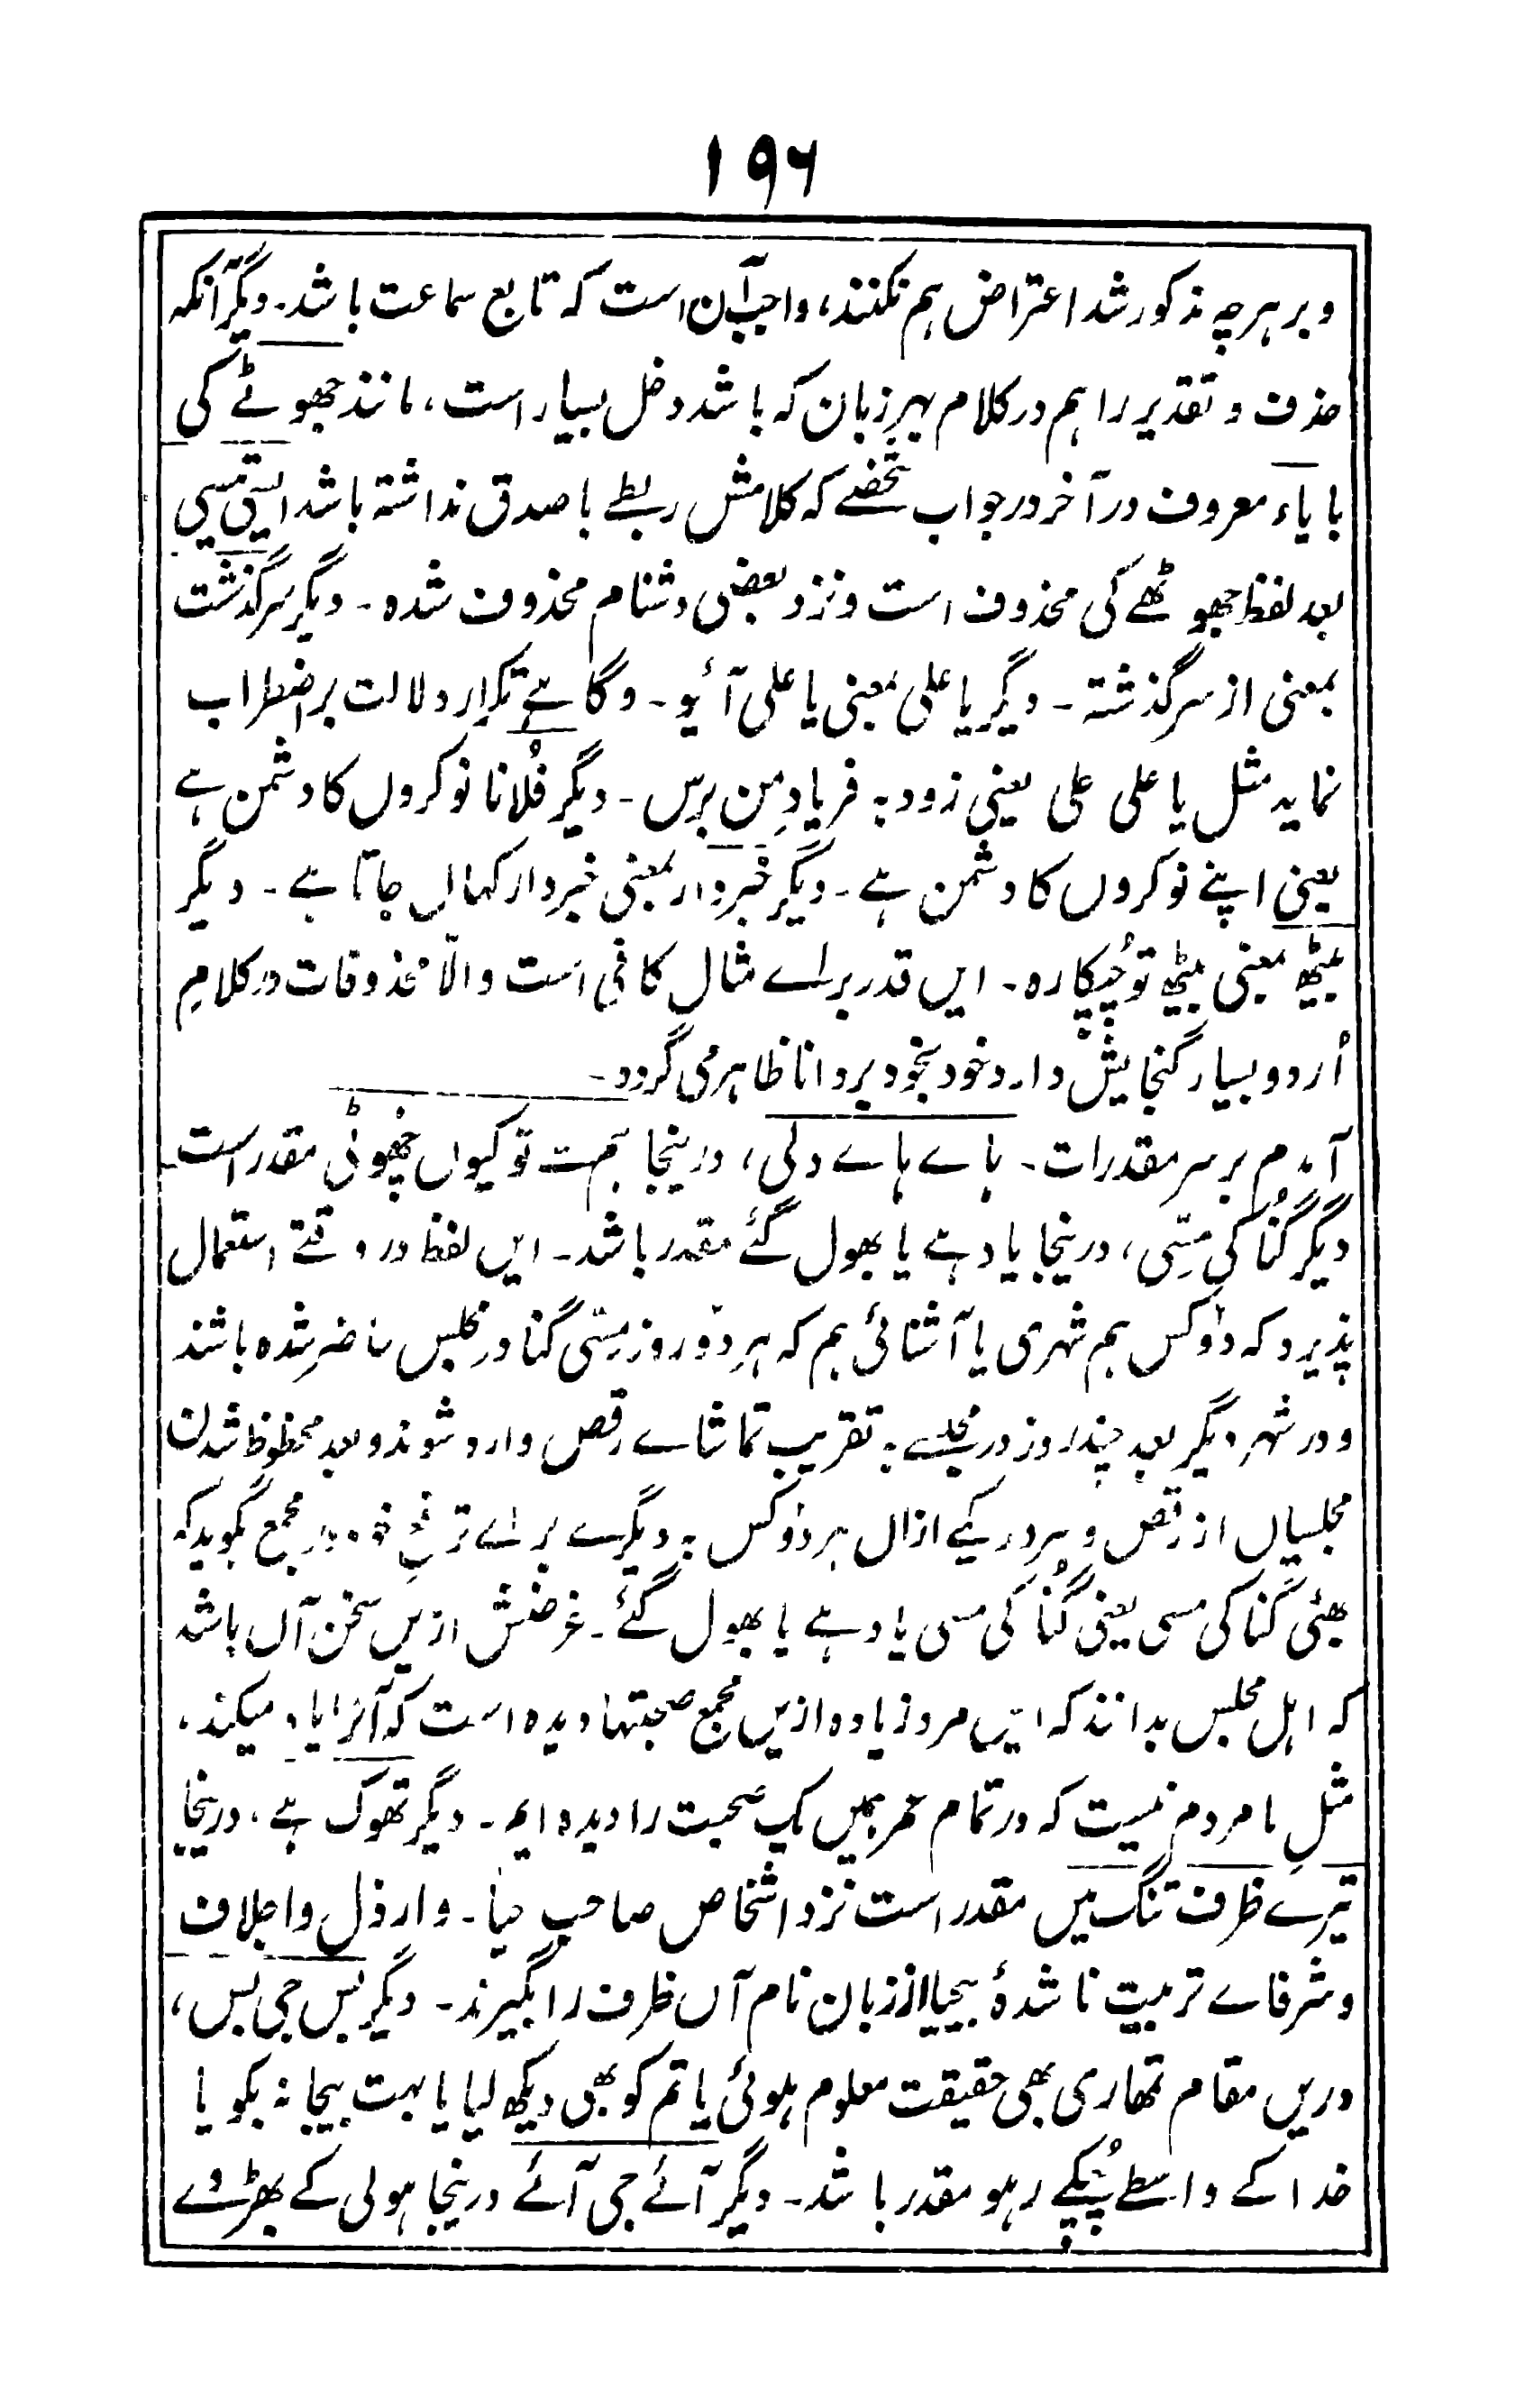 ۱۹۶
و بر ہرچہ مذکور شد اعتراض ہم نکنند، واجب آن است کہ تابع سماعت باشد۔ دیگر آنکہ
حذف و تقدیر را ہم در کلام بہر زبان کہ باشد دخل بسیار است، مانند جھوٹے کی
با یاء معروف در آخر در جواب شخصے کہ کلامش ربطے با صدق نداشتہ باشد ایسی تیسی
بعد لفظ جھوٹھے کی محذوف است و نزد بعضی دشنام محذوف شدہ۔ دیگر سرگذشت
بمعنی از سر گذشتہ۔ دیگر یا علی بمعنی یا علی آئیو۔ و گاہے تکرار دلالت بر اضطراب
نماید مثل یا علی علی یعنی زود بہ فریادِ من برس۔ دیگر فُلانا نوکروں کا دشمن ہے
یعنی اپنے نوکروں کا دشمن ہے۔ دیگر خبردار بمعنی خبردار کہاں جاتا ہے۔ دیگر
بیٹھ بمعنی بیٹھ تو چُپکا رہ۔ ایں قدر براے مثال کافی است والّا محذوفات در کلامِ
اُردو بسیار گنجایش دارد خود بخود بر دانا ظاہر می گردد۔
آمدم بر سر مقدرات۔ ہاے ہاے دلی، درینجا ہم سے تو کیوں چھُوٹی مقدر است
دیگر گُنا کی مِسّی، درینجا یاد ہے یا بھول گئے مقدر باشد۔ ایں لفظ در وقتے استعمال
پذیرد کہ دو کس ہم شہری یا آشنائی ہم کہ ہر دو روز مِسّی گنا در مجلس حاضر شدہ باشند
و در شہرِ دیگر بعد چند روز در مجلسے بہ تقریب تماشاے رقص وارد شوند و بعد محظوظ شدن
مجلسیاں از رقص و سرود یکے ازاں ہر دو کس بہ دیگرے براے ترفّعِ خود در مجمع بگوید کہ
بھئی گنا کی مسی یعنی گُنا کی مسی یاد ہے یا بھول گئے۔ غرضش ازیں سخن آں باشد
کہ اہل مجلس بدانند کہ ایں مرد زیادہ ازیں مجمع صحبتہا دیدہ است کہ آنرا یاد میکند،
مثلِ ما مردم نیست کہ در تمام عمر ہمیں یک صحبت را دیدہ ایم۔ دیگر تھوک ہے، درینجا
تیرے ظرف تنگ میں مقدر است نزد اشخاص صاحب حیا۔ و ارذل و اجلاف
و شرفاے تربیت نا شدۂ بیحیا از زبان نام آں ظرف را بگیرند۔ دیگر بس جی بس،
دریں مقام تمھاری بھی حقیقت معلوم ہوئی یا تم کو بھی دیکھ لیا یا بہت بیجا نہ بکو یا
خدا کے واسطے چُپکے رہو مقدر باشد۔ دیگر آئے جی آئے درینجا ہولی کے بھڑوے